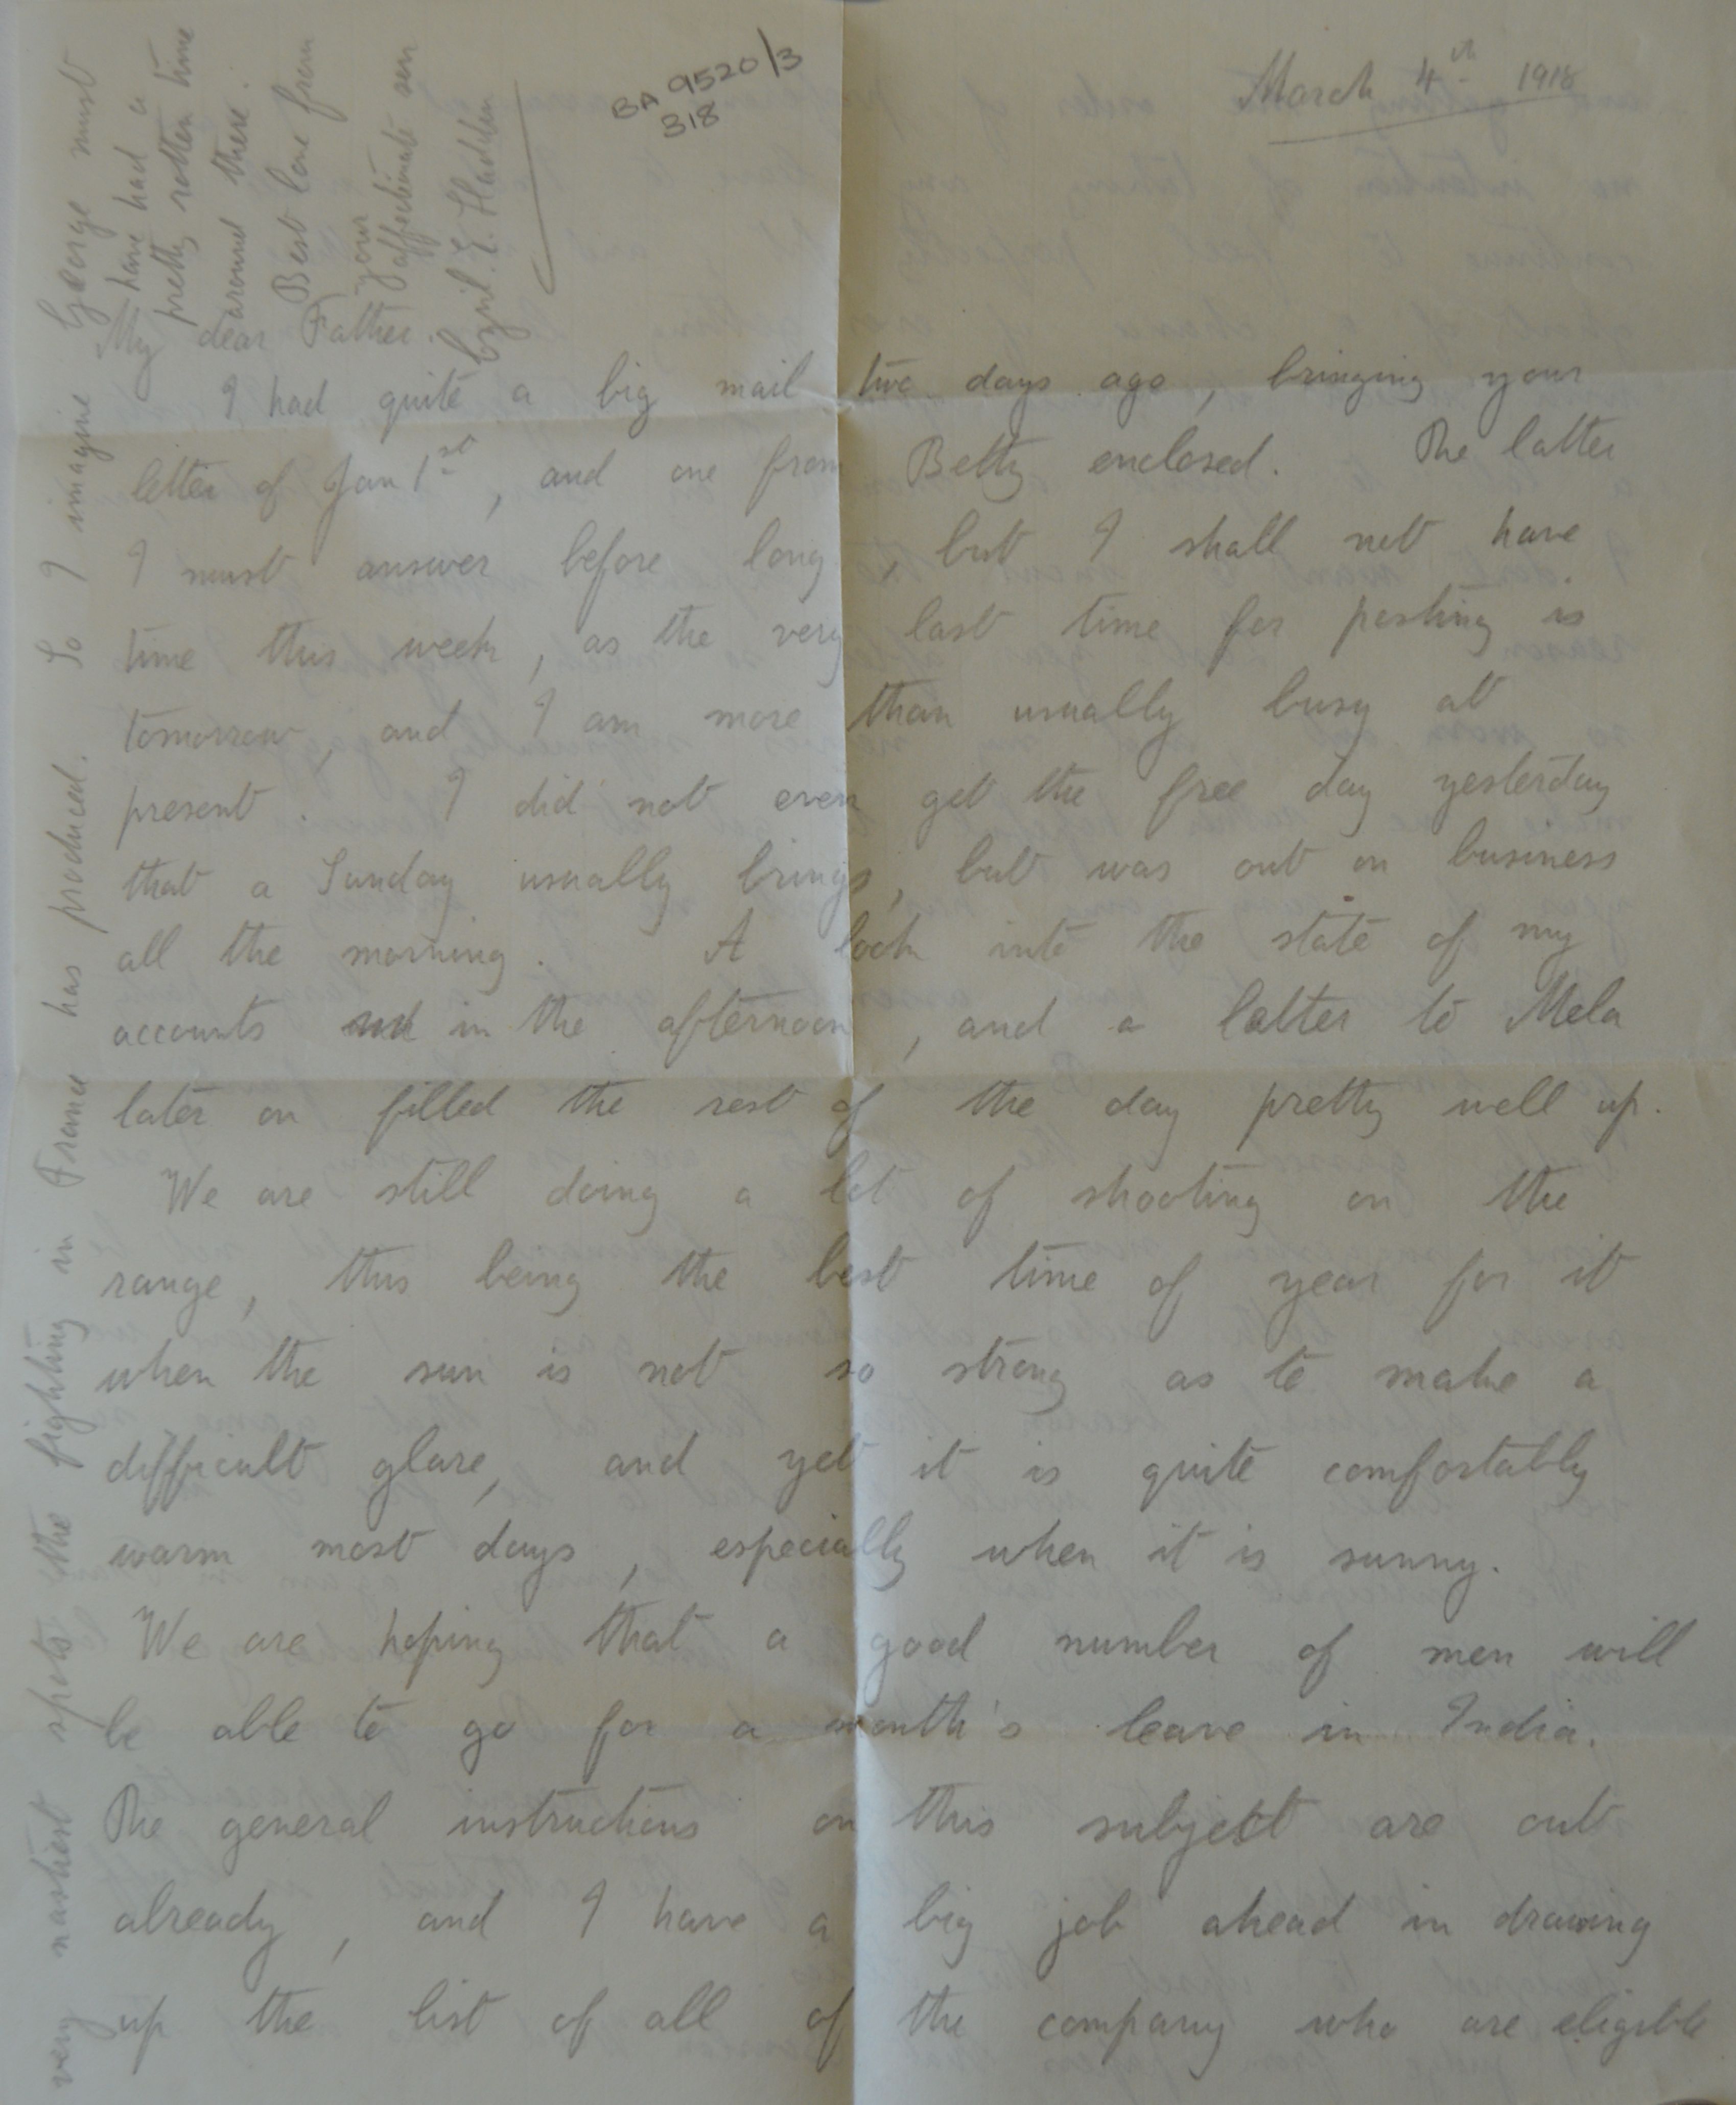 BA 9520/3
318
March 4th 1918
My dear Father.
I had quite a big mail two days ago, bringing your
letter of Jan 1st, and one from Betty enclosed. The latter
I must answer before long, but I shall not have
time this week, as the very last time for posting is
tomorrow, and I am more than usually busy at
present. I did not even get the free day yesterday
that a Sunday usually brings, but was out on business
all the morning. A look into the state of my
accounts in the afternoon, and a letter to Mela
later on filled the rest of the day pretty well up.
We are still doing a lot of shooting on the
range, this being the best time of year for it
when the sun is not so strong as to make a
difficult glare, and yet it is quite comfortably
warm most days, especially when it is sunny.
We are hoping that a good number of men will
be able to go for a month's leave in India.
The general instructions on this subject are out
already, and I have a big job ahead in drawing
up the list of all of the company who are eligible
very nastiest spots the fighting in France has produced. So I imagine George must
have had a
pretty rotten time
around there.
Best love from
your
affectionate son
E.